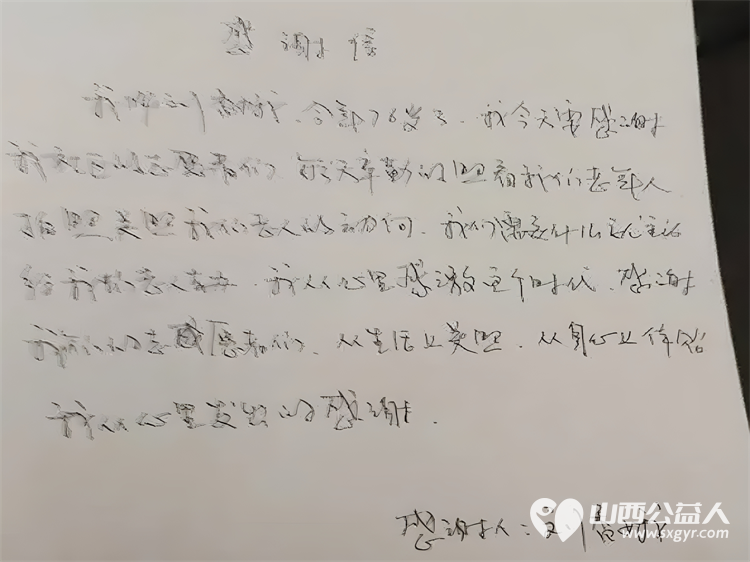 感谢信
我叫刘 ，今年76岁了，我今天要感谢
我社区的志愿者们，每天辛勤的照看我们老年人
照 关照我们老人的 ，我们需要什么
给我们老人 ，我从心里感激这个时代，感谢
我们的志愿者们，从生活上关照，从身心上体贴
我从心里发出的感谢。
感谢人：刘
山西公益人
www.sxgyr.com